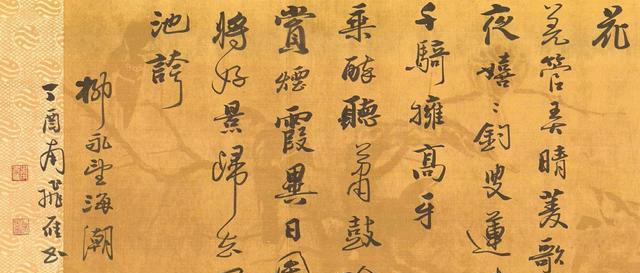 花
羌管弄晴菱歌
夜嬉々釣叟蓮
千騎擁高牙
乘醉聽蕭鼓
賞煙霞異日圖
將好景歸去
池誇
柳永望海潮
丁酉南飛雁書